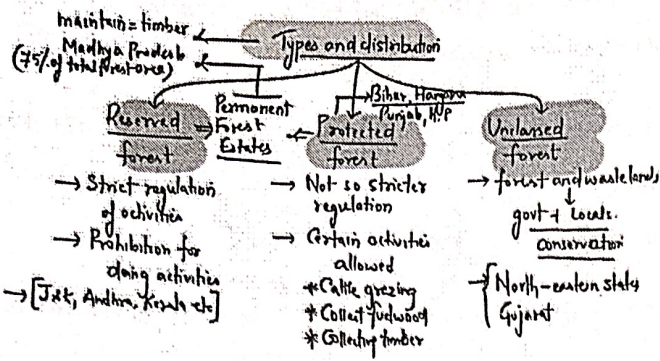 maintain = timber
Types and distribution
Madhya Pradesh
(75% of total forest area)
Bihar, Haryana
Punjab, H.P
Reserved
forest
Permanent
Forest
Estates
Protected
forest
Unclassed
forest
→ Strict regulation
of activities
→ Prohibition for
doing activities
→ [J&K, Andhra, Kerala etc]
→ Not so stricter
regulation
→ Certain activities
allowed
* Cattle grezing
* Collect fuelwood
* Collecting timber
→ forest and wastelands
↓
govt + Locals.
conservation
→ { North-eastern states
Gujarat